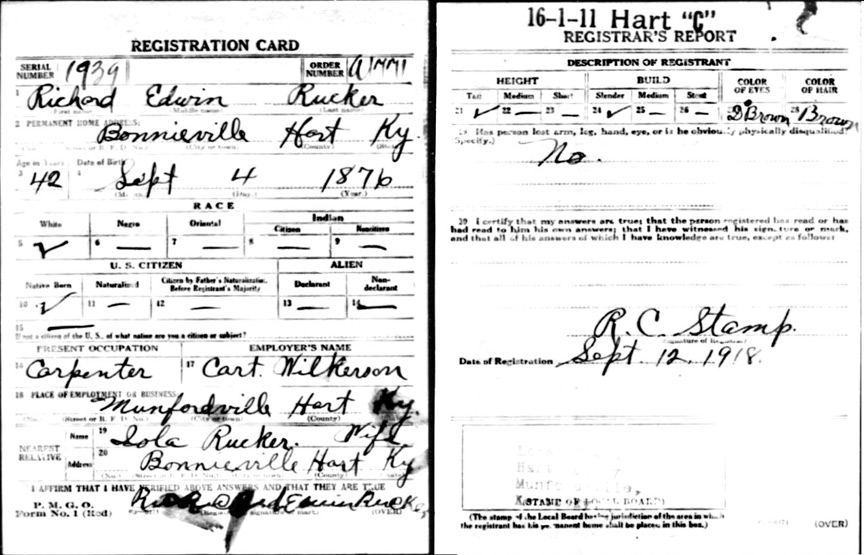 REGISTRATION CARD
SERIAL NUMBER 1939 ORDER NUMBER
1 Richard Edwin Rucker
(Last name)
2 PERMANENT HOME ADDRESS:
Bonnieville Hart Ky
(City or town) (County)
Age in Years Date of Birth
3 42 4 Sept 4 1876
(Day.) (Year.)
RACE
White Negro Oriental Indian
Citizen Noncitizen
5 ✓ 6 — 7 — 8 — 9 —
U. S. CITIZEN ALIEN
Native Born Naturalized Citizen by Father's Naturalization Before Registrant's Majority Declarant Non-declarant
10 ✓ 11 — 12 — 13 — 14 —
15 —
If not a citizen of the U. S., of what nation are you a citizen or subject?
PRESENT OCCUPATION EMPLOYER'S NAME
16 Carpenter 17 Cart. Wilkerson
18 PLACE OF EMPLOYMENT OR BUSINESS:
Munfordville Hart Ky.
(City or town) (County)
NEAREST RELATIVE Name 19 Iola Rucker. Wife
Address 20 Bonnieville Hart Ky
I AFFIRM THAT I HAVE VERIFIED ABOVE ANSWERS AND THAT THEY ARE TRUE
P. M. G. O.
Form No. 1 (Red) Richard Edwin Rucker
(OVER)
16-1-11 Hart "C"
REGISTRAR'S REPORT
DESCRIPTION OF REGISTRANT
HEIGHT BUILD COLOR OF EYES COLOR OF HAIR
Tall Medium Short Slender Medium Stout
21 ✓ 22 — 23 — 24 ✓ 25 — 26 — D Brown 28 Brown
29 Has person lost arm, leg, hand, eye, or is he obviously physically disqualified?
(Specify.)
No.
30 I certify that my answers are true; that the person registered has read or has
had read to him his own answers; that I have witnessed his signature or mark,
and that all of his answers of which I have knowledge are true, except as follows:
R. C. Stamp.
(Signature of Registrar)
Date of Registration Sept. 12, 1918.
(STAMP OF LOCAL BOARD)
(The stamp of the Local Board having jurisdiction of the area in which
the registrant has his permanent home shall be placed in this box.)
(OVER)